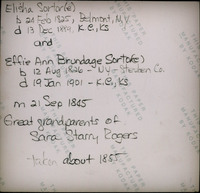 Elisha Sartor(e)
b 20 Feb 1825, Belmont, N.Y.
d 13 Dec 1894, K.C., KS
and
Effie Ann Brundage Sartor(e)
b 12 Aug 1826 - NY - Steuben Co.
d 19 Jan 1901 - K.C., KS.
m 21 Sep 1845
Great grandparents of
Sara Starry Rogers
taken about 1855